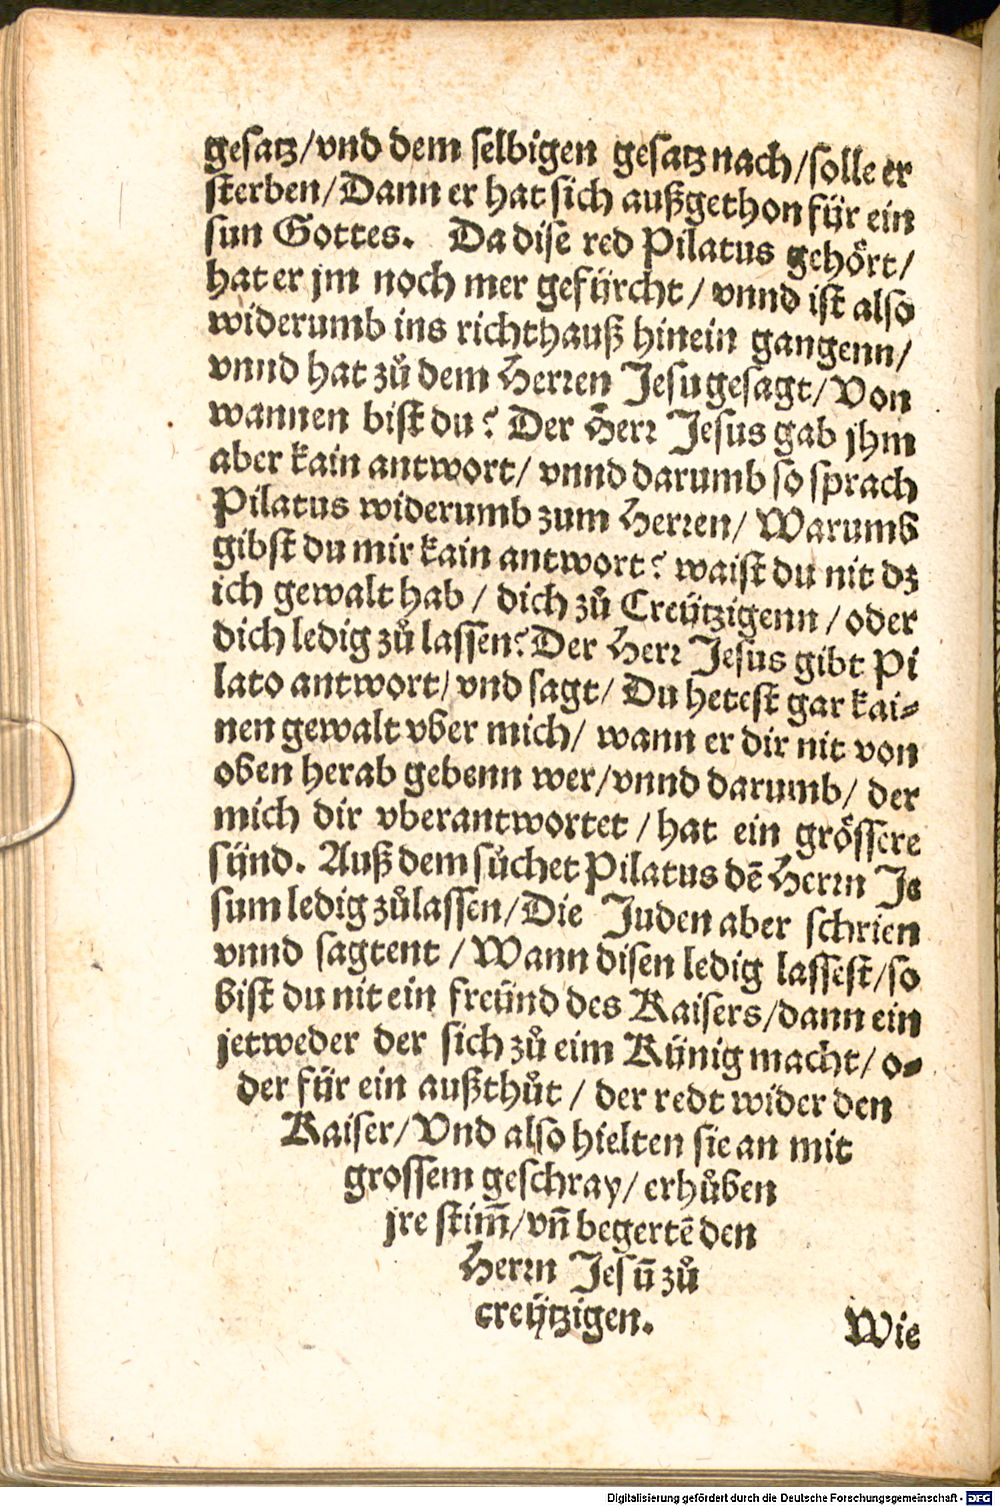 gesatz/vnd dem selbigen gesatz nach/solle er
sterben/Dann er hat sich außgethon für ein
sun Gottes. Da dise red Pilatus gehört/
hat er jm noch mer gefürcht/ vnnd ist also
widerumb ins richthauß hinein gangenn/
vnnd hat zů dem Herren Jesu gesagt/Von
wannen bist du? Der Herr Jesus gab jhm
aber kain antwort/ vnnd darumb so sprach
Pilatus widerumb zum Herren/ Warumb
gibst du mir kain antwort? waist du nit dz
ich gewalt hab / dich zů Creützigenn / oder
dich ledig zů lassen? Der Herr Jesus gibt Pi
lato antwort/ vnd sagt/ Du hetest gar kai-
nen gewalt vber mich/ wann er dir nit von
oben herab gebenn wer/vnnd darumb/ der
mich dir vberantwortet / hat ein grössere
sünd. Auß dem sůchet Pilatus dē Herrn Je
sum ledig zůlassen/Die Juden aber schrien
vnnd sagtent / Wann disen ledig lassest/so
bist du nit ein freünd des Kaisers/dann ein
jetweder der sich zů eim Künig macht/ o-
der für ein außthůt / der redt wider den
Kaiser/ Vnd also hielten sie an mit
grossem geschray/ erhůben
jre stim̄/ vn̄ begertē den
Herrn Jesū zů
creützigen.
Wie
Digitalisierung gefördert durch die Deutsche Forschungsgemeinschaft - DFG